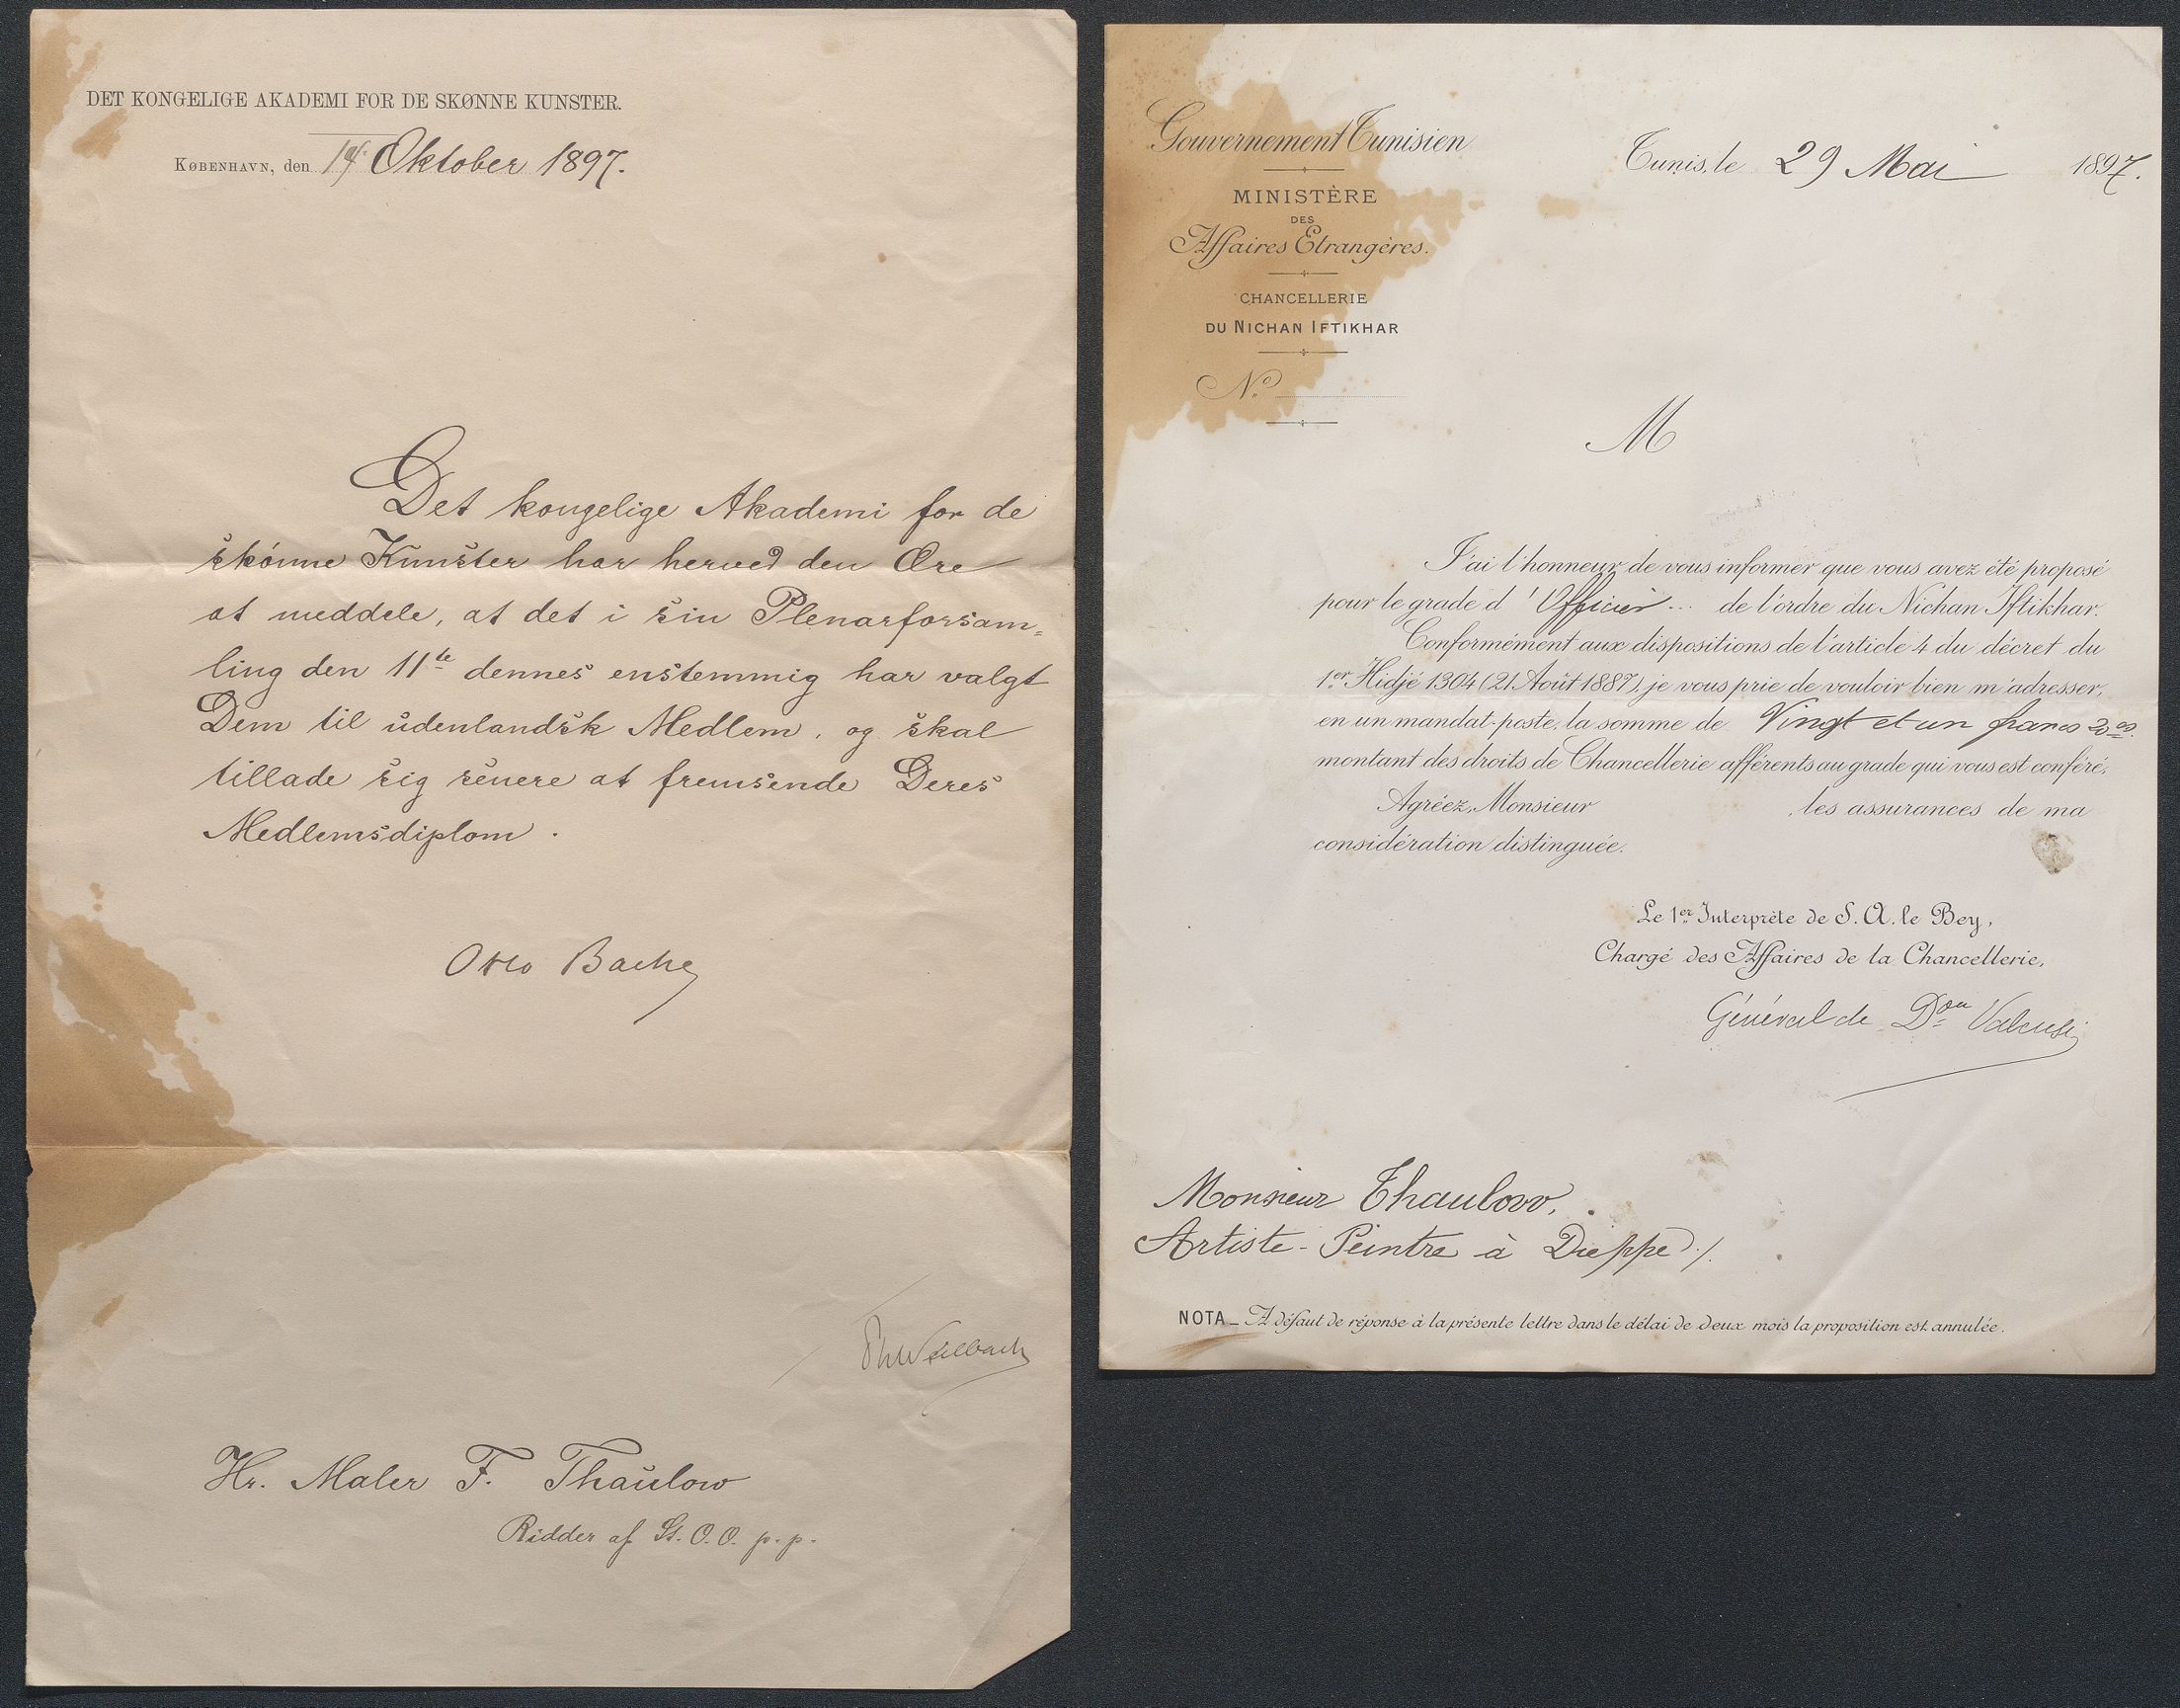 DET KONGELIGE AKADEMI FOR DE SKØNNE KUNSTER.
KØBENHAVN, den 14. Oktober 1897.
Det kongelige Akademi for de
skønne Kunster har herved den Ære
at meddele, at det i sin Plenarforsam=
ling den 11te dennes enstemmig har valgt
Dem til udenlandsk Medlem, og skal
tillade sig senere at fremsende Deres
Medlemsdiplom.
Otto Bache
Ph Weilbach
Hr. Maler F. Thaulow
Ridder af St. O. O. p. p.
Gouvernement Tunisien
MINISTÈRE
DES
Affaires Etrangères.
CHANCELLERIE
DU NICHAN IFTIKHAR
No.
Tunis, le 29 Mai 1897.
M
J'ai l'honneur de vous informer que vous avez été proposé
pour le grade d'Officier... de l'ordre du Nichan Iftikhar.
Conformément aux dispositions de l'article 4 du décret du
1er Hidjé 1304 (21 Août 1887), je vous prie de vouloir bien m'adresser,
en un mandat-poste, la somme de Vingt et un francs 20cs.
montant des droits de Chancellerie afférents au grade qui vous est conféré.
Agréez, Monsieur , les assurances de ma
considération distinguée.
Le 1er Interprète de S. A. le Bey,
Chargé des Affaires de la Chancellerie,
Général de Don Valensi
Monsieur Thaulow,
Artiste-Peintre à Dieppe ./.
NOTA_ A défaut de réponse à la présente lettre dans le délai de deux mois la proposition est annulée.